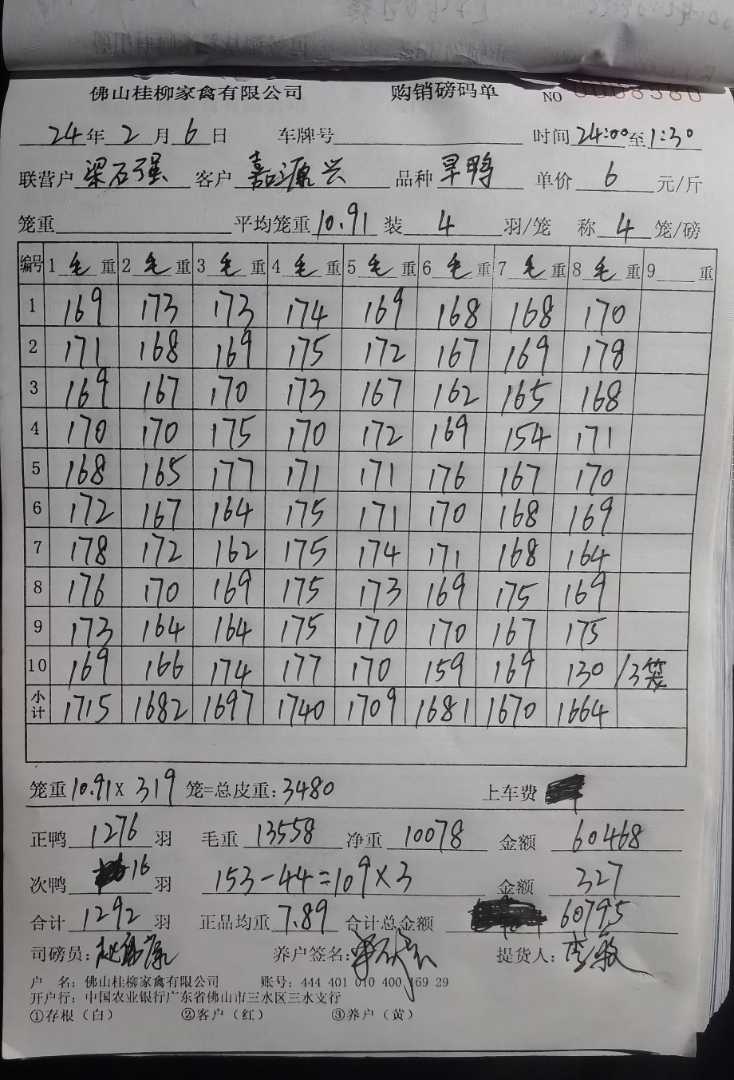 佛山桂柳家禽有限公司 购销磅码单 NO 0008580
24年2月6日 车牌号 时间24:00至1:30
联营户 梁石强 客户 嘉源兴 品种 旱鸭 单价 6 元/斤
笼重 平均笼重10.91 装 4 羽/笼 称 4 笼/磅
编号 1毛重 2毛重 3毛重 4毛重 5毛重 6毛重 7毛重 8毛重 9 重
1 169 173 173 174 169 168 168 170
2 171 168 169 175 172 167 169 178
3 169 167 170 173 167 162 165 168
4 170 170 175 170 172 169 154 171
5 168 165 177 171 171 176 167 170
6 172 167 164 175 171 170 168 169
7 178 172 162 175 174 171 168 164
8 176 170 169 175 173 169 175 169
9 173 164 164 175 170 170 167 175
10 169 166 174 177 170 159 169 130 /3笼
小计 1715 1682 1697 1740 1709 1681 1670 1664
笼重10.91×319笼=总皮重:3480 上车费
正鸭 1276 羽 毛重 13558 净重 10078 金额 60468
次鸭 16 羽 153-44=109×3 金额 327
合计 1292 羽 正品均重 7.89 合计总金额 60795
司磅员: 养户签名: 提货人:李敏
户 名:佛山桂柳家禽有限公司 账号:444 401 010 400 169 29
开户行:中国农业银行广东省佛山市三水区三水支行
①存根(白) ②客户(红) ③养户(黄)